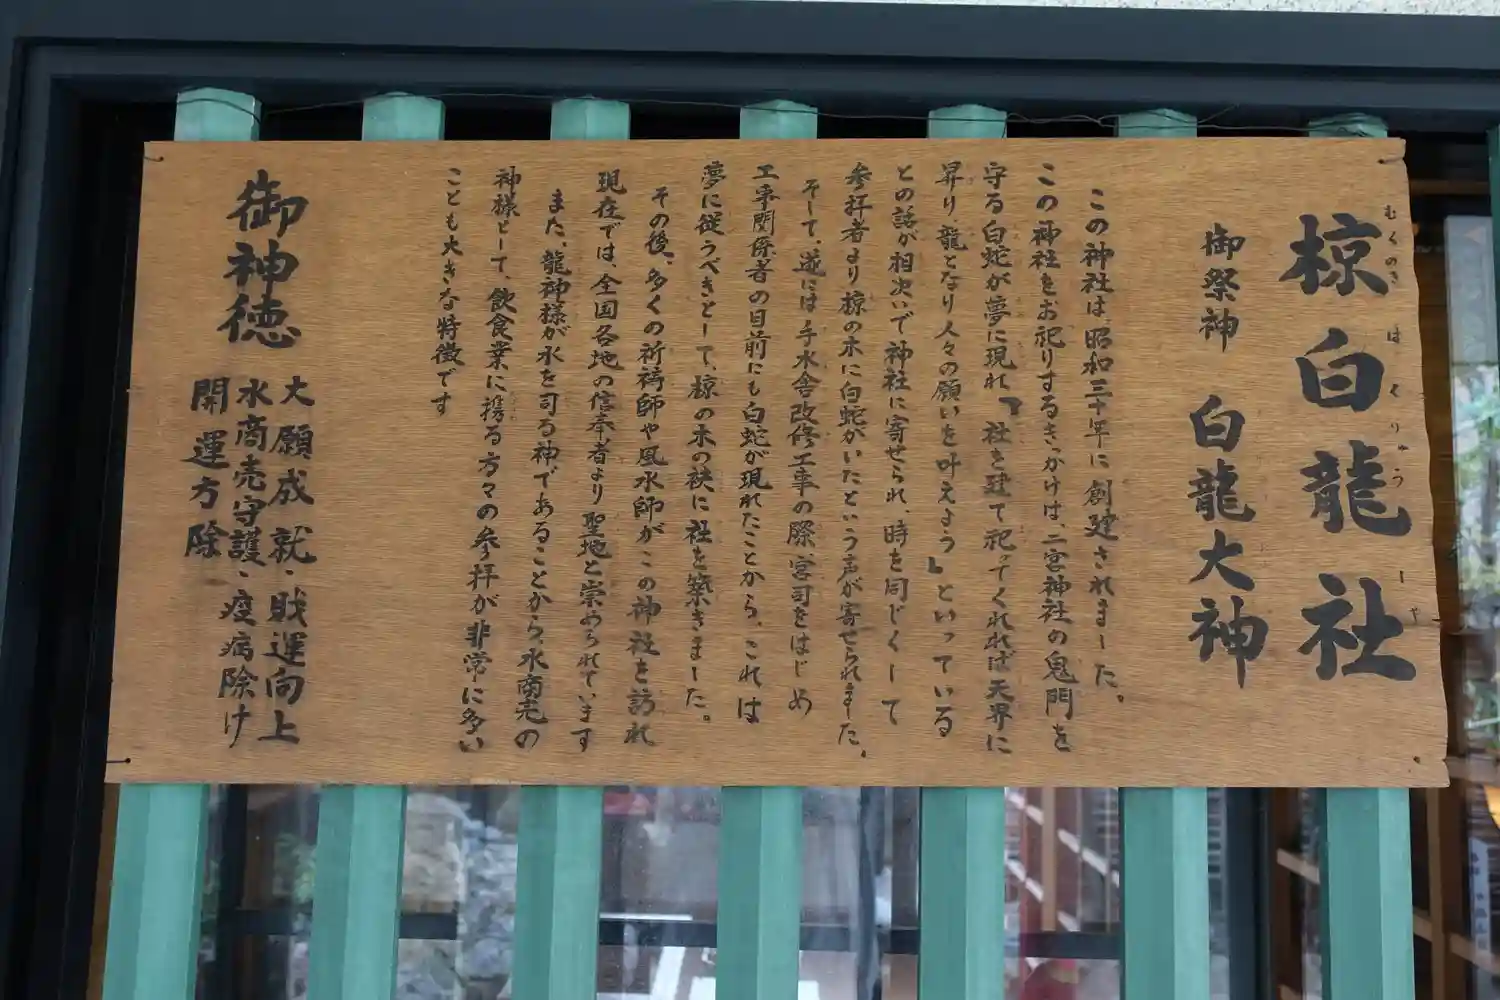 椋白龍社
むくのき はくりゅうしゃ
御祭神 白龍大神
この神社は、昭和三十年に創建されました。
この神社をお祀りするきっかけは、二宮神社の鬼門を
守る白蛇が夢に現れ『社を建て祀ってくれれば天界に
昇り、龍となり人々の願いを叶えよう』といっている
との話が相次いで神社に寄せられ、時を同じくして
参拝者より椋の木に白蛇がいたという声が寄せられました。
そして、遂には手水舎改修工事の際、宮司をはじめ
工事関係者の目前にも白蛇が現れたことから、これは
夢に従うべきとして、椋の木の袂に社を築きました。
その後、多くの祈祷師や風水師がこの神社を訪れ
現在では、全国各地の信奉者より聖地と崇められています
また、龍神様が水を司る神であることから、水商売の
神様として、飲食業に携る方々の参拝が非常に多い
ことも大きな特徴です
御神徳
大願成就・財運向上
水商売守護・疫病除け
開運方除